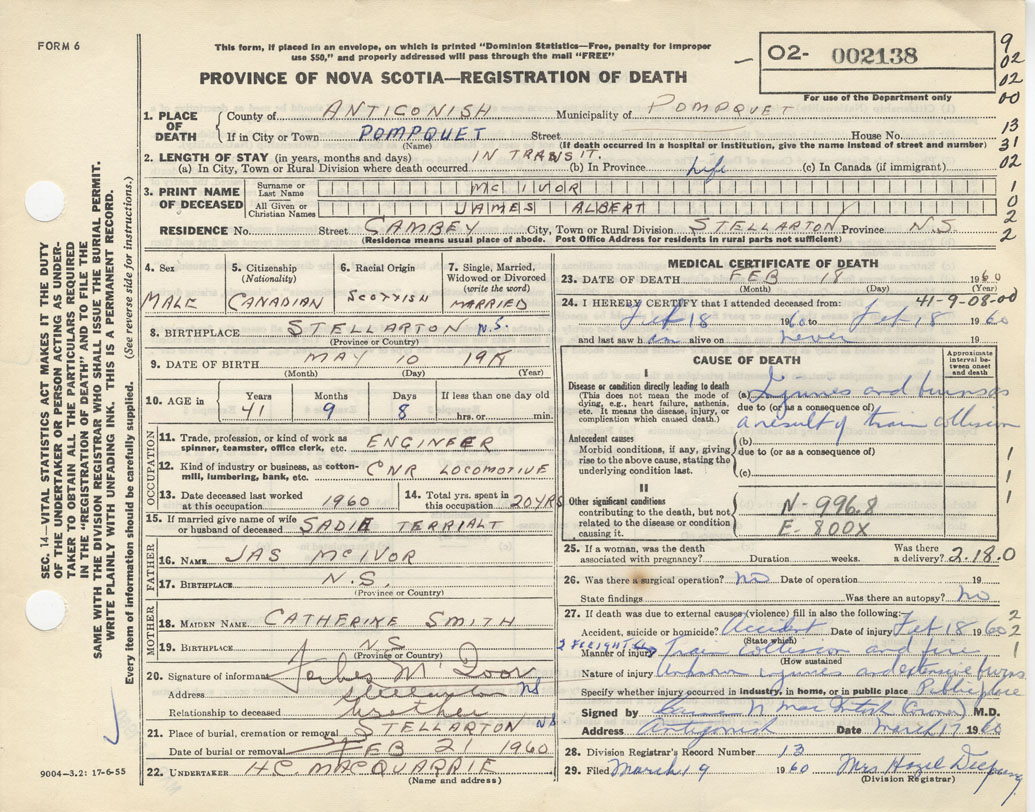 FORM 6
This form, if placed in an envelope, on which is printed "Dominion Statistics—Free, penalty for improper
use $50," and properly addressed will pass through the mail "FREE"
PROVINCE OF NOVA SCOTIA—REGISTRATION OF DEATH
02- 002138
For use of the Department only
9
02
02
00
13
31
02
1
0
2
2
1. PLACE OF DEATH
County of ANTIGONISH Municipality of POMPQUET
If in City or Town POMPQUET Street House No.
(Name) (If death occurred in a hospital or institution, give the name instead of street and number)
2. LENGTH OF STAY (in years, months and days) IN TRANSIT.
(a) In City, Town or Rural Division where death occurred (b) In Province Life (c) In Canada (if immigrant)
3. PRINT NAME OF DECEASED
Surname or Last Name MCIVOR
All Given or Christian Names JAMES ALBERT
RESIDENCE No. Street CAMBEY City, Town or Rural Division STELLARTON Province N.S.
(Residence means usual place of abode. Post Office Address for residents in rural parts not sufficient)
4. Sex MALE
5. Citizenship (Nationality) CANADIAN
6. Racial Origin SCOTTISH
7. Single, Married, Widowed or Divorced (write the word) MARRIED
8. BIRTHPLACE STELLARTON N.S.
(Province or Country)
9. DATE OF BIRTH MAY 10
(Month) (Day) (Year)
10. AGE in Years 41 Months 9 Days 8 If less than one day old hrs. or min.
OCCUPATION
11. Trade, profession, or kind of work as spinner, teamster, office clerk, etc. ENGINEER
12. Kind of industry or business, as cotton-mill, lumbering, bank, etc. CNR LOCOMOTIVE
13. Date deceased last worked at this occupation 1960
14. Total yrs. spent in this occupation 20 YRS
15. If married give name of wife or husband of deceased SADIE TERRIALT
FATHER
16. NAME JAS MCIVOR
17. BIRTHPLACE N.S.
(Province or Country)
MOTHER
18. MAIDEN NAME CATHERINE SMITH
19. BIRTHPLACE N.S
(Province or Country)
20. Signature of informant
Address Stellarton NS
Relationship to deceased brother
21. Place of burial, cremation or removal STELLARTON NS
Date of burial or removal FEB 21 1960
22. UNDERTAKER H.C. MACQUARRIE
(Name and address)
MEDICAL CERTIFICATE OF DEATH
23. DATE OF DEATH FEB 18 1960
(Month) (Day) (Year)
41-9-08-00
24. I HEREBY CERTIFY that I attended deceased from:
Feb 18 1960 to Feb 18 1960
and last saw h im alive on never 19
CAUSE OF DEATH
Approximate interval between onset and death
I
Disease or condition directly leading to death
(This does not mean the mode of dying, e.g., heart failure, asthenia, etc. It means the disease, injury, or complication which caused death.)
(a) Injuries and burns
due to (or as a consequence of)
a result of train collision
Antecedent causes
Morbid conditions, if any, giving rise to the above cause, stating the underlying condition last.
(b)
due to (or as a consequence of)
(c)
1
1
1
II
Other significant conditions
contributing to the death, but not related to the disease or condition causing it.
N-996.8
E-800X
25. If a woman, was the death associated with pregnancy? Duration weeks. Was there a delivery? 2.18.0
26. Was there a surgical operation? no Date of operation 19
State findings Was there an autopsy? no
27. If death was due to external causes (violence) fill in also the following:
Accident, suicide or homicide? Accident Date of injury Feb 18 1960
(State which)
2
2
1
Manner of injury Train Collision and fire
(How sustained)
Nature of injury Unknown injuries and extensive burns
Specify whether injury occurred in industry, in home, or in public place Public place
Signed by (Coroner) M.D.
Address Antigonish Date March 17 1960
28. Division Registrar's Record Number 13
29. Filed March 19 1960 Mrs Hazel
(Division Registrar)
SEC. 14—VITAL STATISTICS ACT MAKES IT THE DUTY
OF THE UNDERTAKER OR PERSON ACTING AS UNDER-
TAKER TO OBTAIN ALL THE PARTICULARS REQUIRED
IN THE "REGISTRATION OF DEATH" AND TO FILE THE
SAME WITH THE DIVISION REGISTRAR WHO SHALL ISSUE THE BURIAL PERMIT.
WRITE PLAINLY WITH UNFADING INK. THIS IS A PERMANENT RECORD.
Every item of information should be carefully supplied. (See reverse side for instructions.)
9004—3.2: 17-6-55